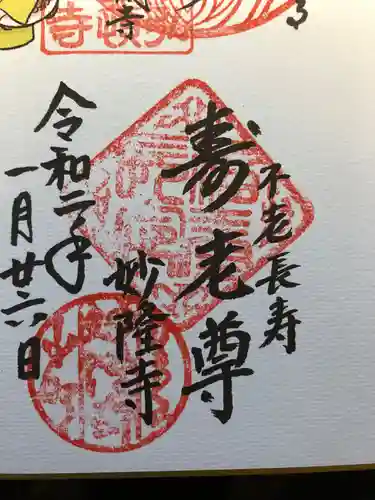 不老長寿
寿老尊
妙隆寺
令和二年
一月廿六日